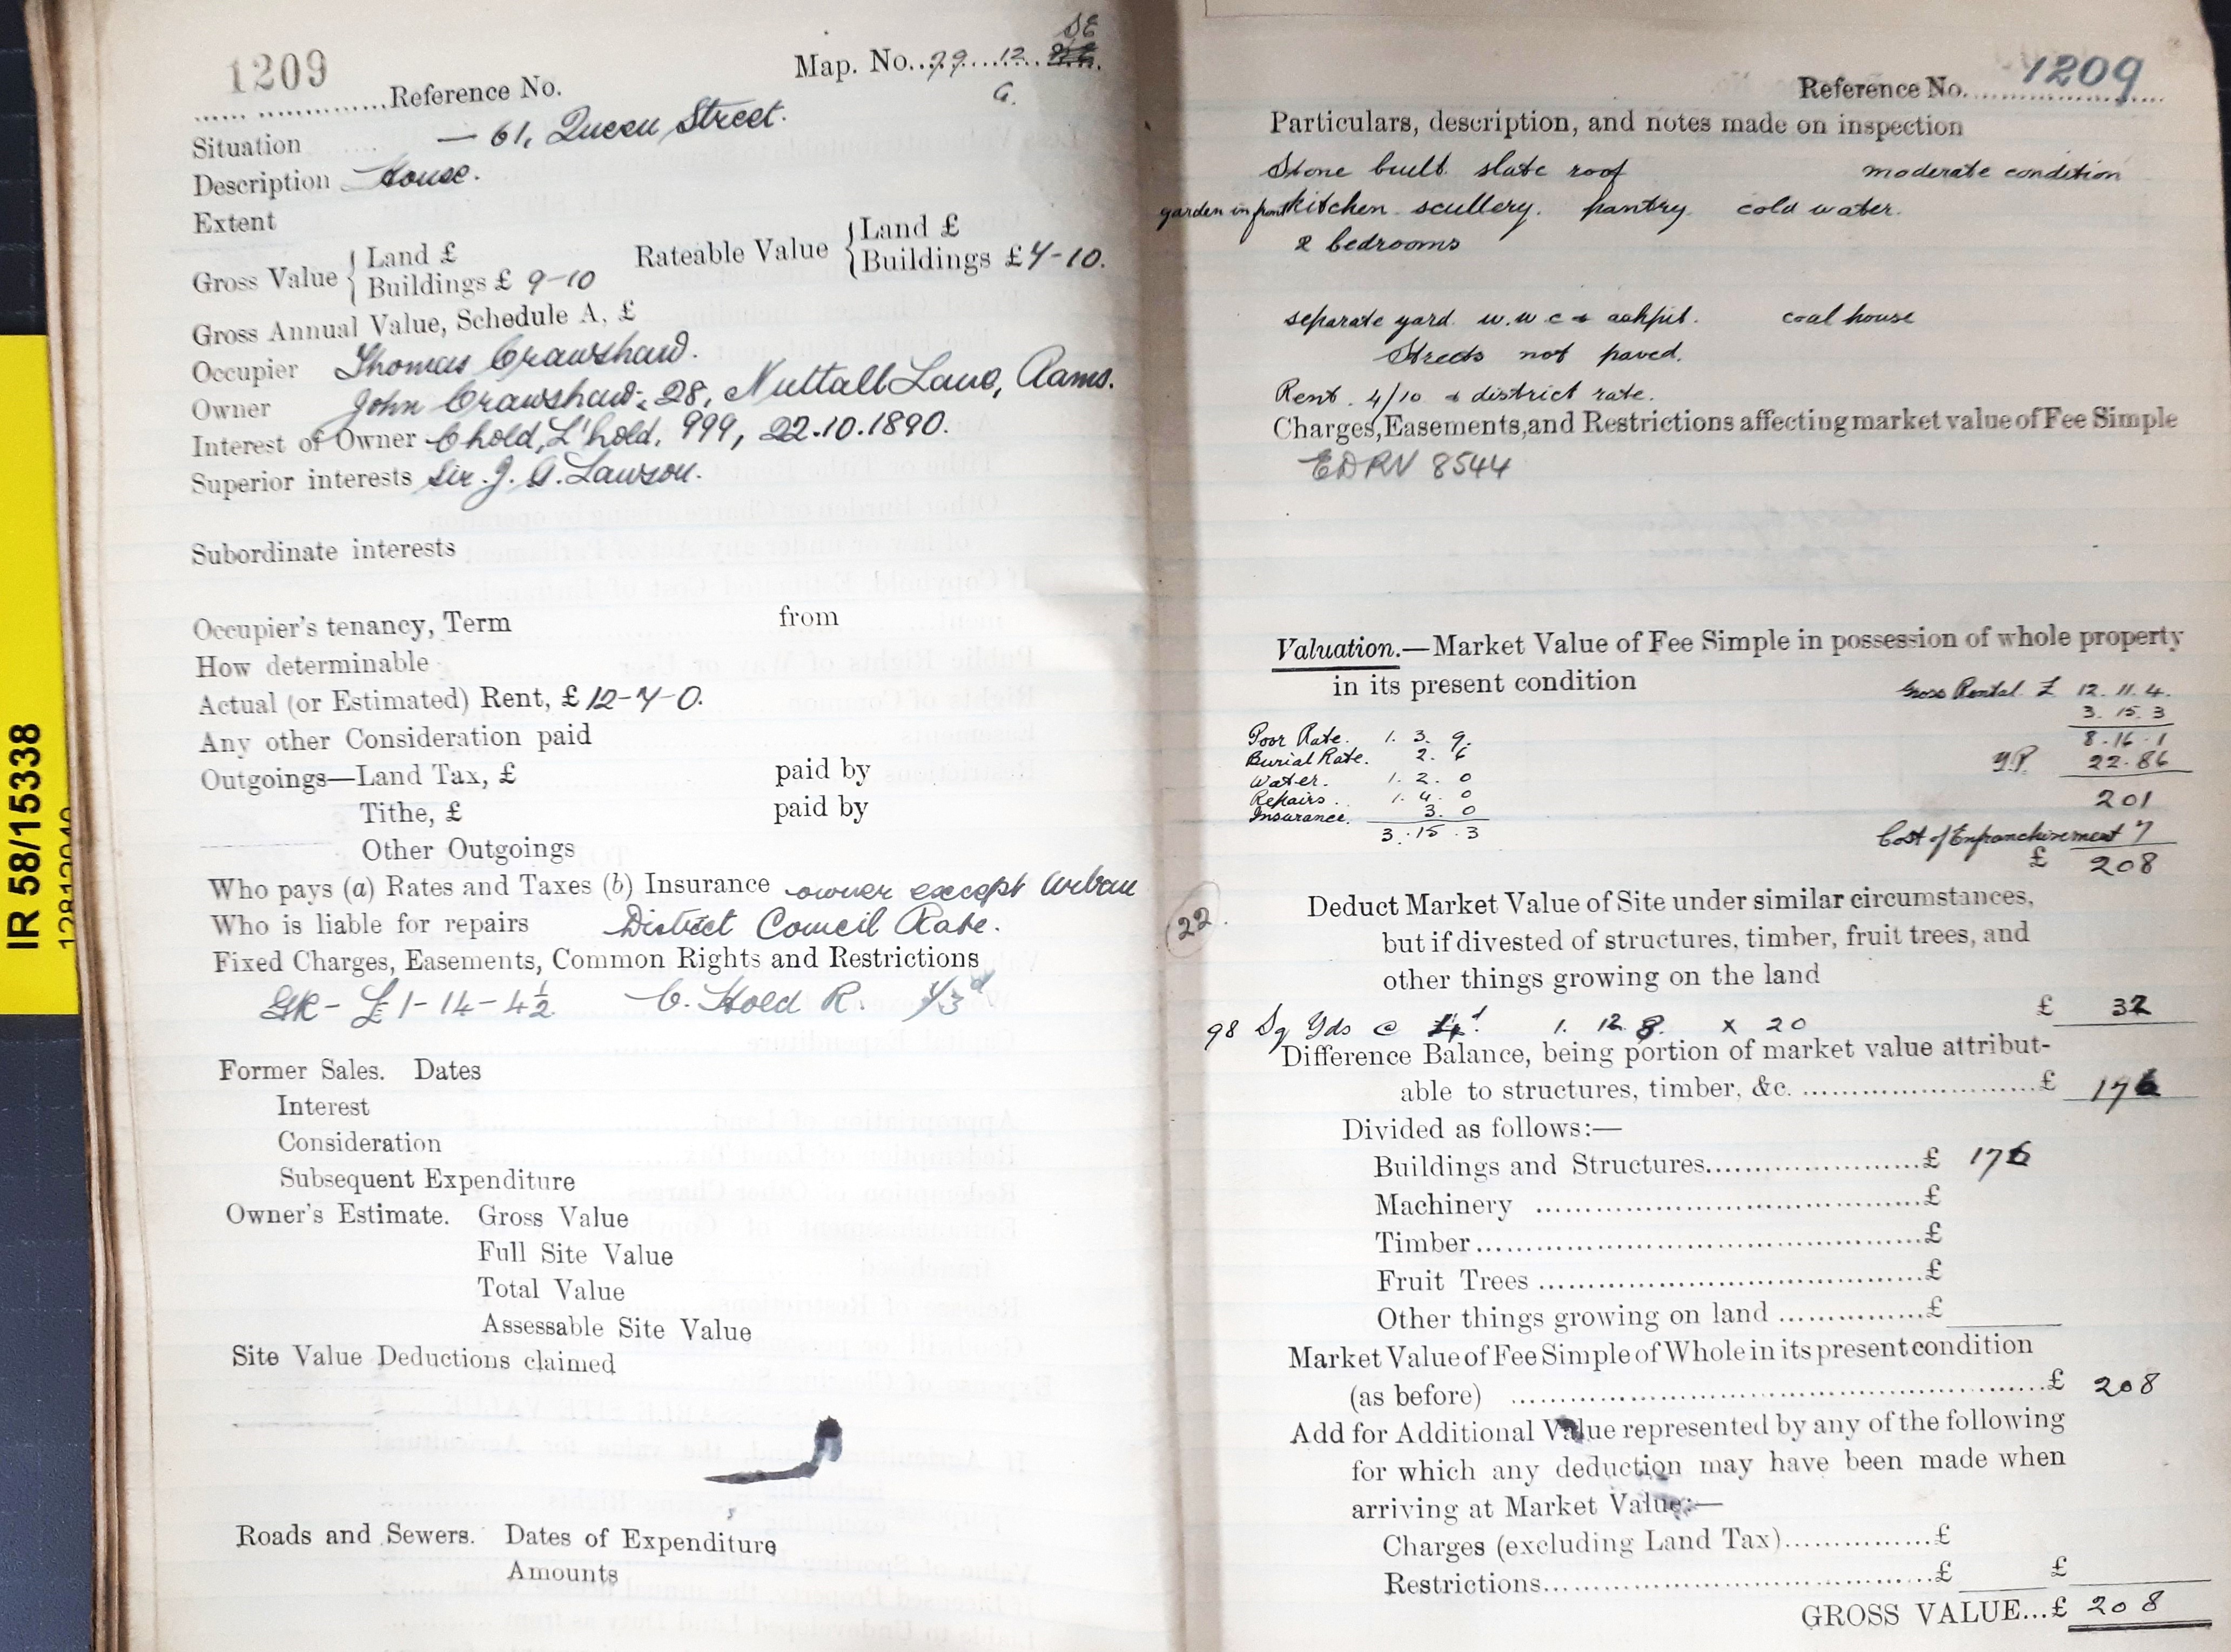 IR 58/15338
1209
Reference No.
Map. No. 79 12 SE
G.
Situation — 61, Queen Street.
Description House.
Extent
Gross Value { Land £
Buildings £ 9-10
Rateable Value { Land £
Buildings £ 7-10.
Gross Annual Value, Schedule A, £
Occupier Thomas Crawshaw.
Owner John Crawshaw, 28, Nuttall Lane, Rams.
Interest of Owner C'hold, L'hold, 999, 22.10.1890.
Superior interests Sir. J. G. Lawson.
Subordinate interests
Occupier's tenancy, Term from
How determinable
Actual (or Estimated) Rent, £ 12-7-0.
Any other Consideration paid
Outgoings—Land Tax, £ paid by
Tithe, £ paid by
Other Outgoings
Who pays (a) Rates and Taxes (b) Insurance owner except Urban
Who is liable for repairs District Council Rate.
Fixed Charges, Easements, Common Rights and Restrictions
GR - £1-14-4½ C. Hold R. 1/3d
Former Sales. Dates
Interest
Consideration
Subsequent Expenditure
Owner's Estimate. Gross Value
Full Site Value
Total Value
Assessable Site Value
Site Value Deductions claimed
Roads and Sewers. Dates of Expenditure
Amounts
Reference No. 1209
Particulars, description, and notes made on inspection
Stone built slate roof moderate condition
garden in front kitchen scullery. pantry cold water.
2 bedrooms
separate yard w.w.c & ashpit. coal house
Streets not paved.
Rent. 4/10 & district rate.
Charges, Easements, and Restrictions affecting market value of Fee Simple
EDRV 8544
Valuation.—Market Value of Fee Simple in possession of whole property
in its present condition
Gross Rental £ 12. 11. 4.
3. 15. 3
8. 16. 1
Y.P. 22.86
201
Cost of Enfranchisement 7
£ 208
Poor Rate. 1. 3. 9.
Burial Rate. 2. 6
Water. 1. 2. 0
Repairs. 1. 4. 0
Insurance. 3. 0
3. 15. 3
22.
Deduct Market Value of Site under similar circumstances,
but if divested of structures, timber, fruit trees, and
other things growing on the land £ 32
98 Sq Yds @ 4d 1. 12. 8. x 20
Difference Balance, being portion of market value attribut-
able to structures, timber, &c. £ 176
Divided as follows:—
Buildings and Structures £ 176
Machinery £
Timber £
Fruit Trees £
Other things growing on land £
Market Value of Fee Simple of Whole in its present condition
(as before) £ 208
Add for Additional Value represented by any of the following
for which any deduction may have been made when
arriving at Market Value:—
Charges (excluding Land Tax) £
Restrictions £ £
GROSS VALUE...£ 208